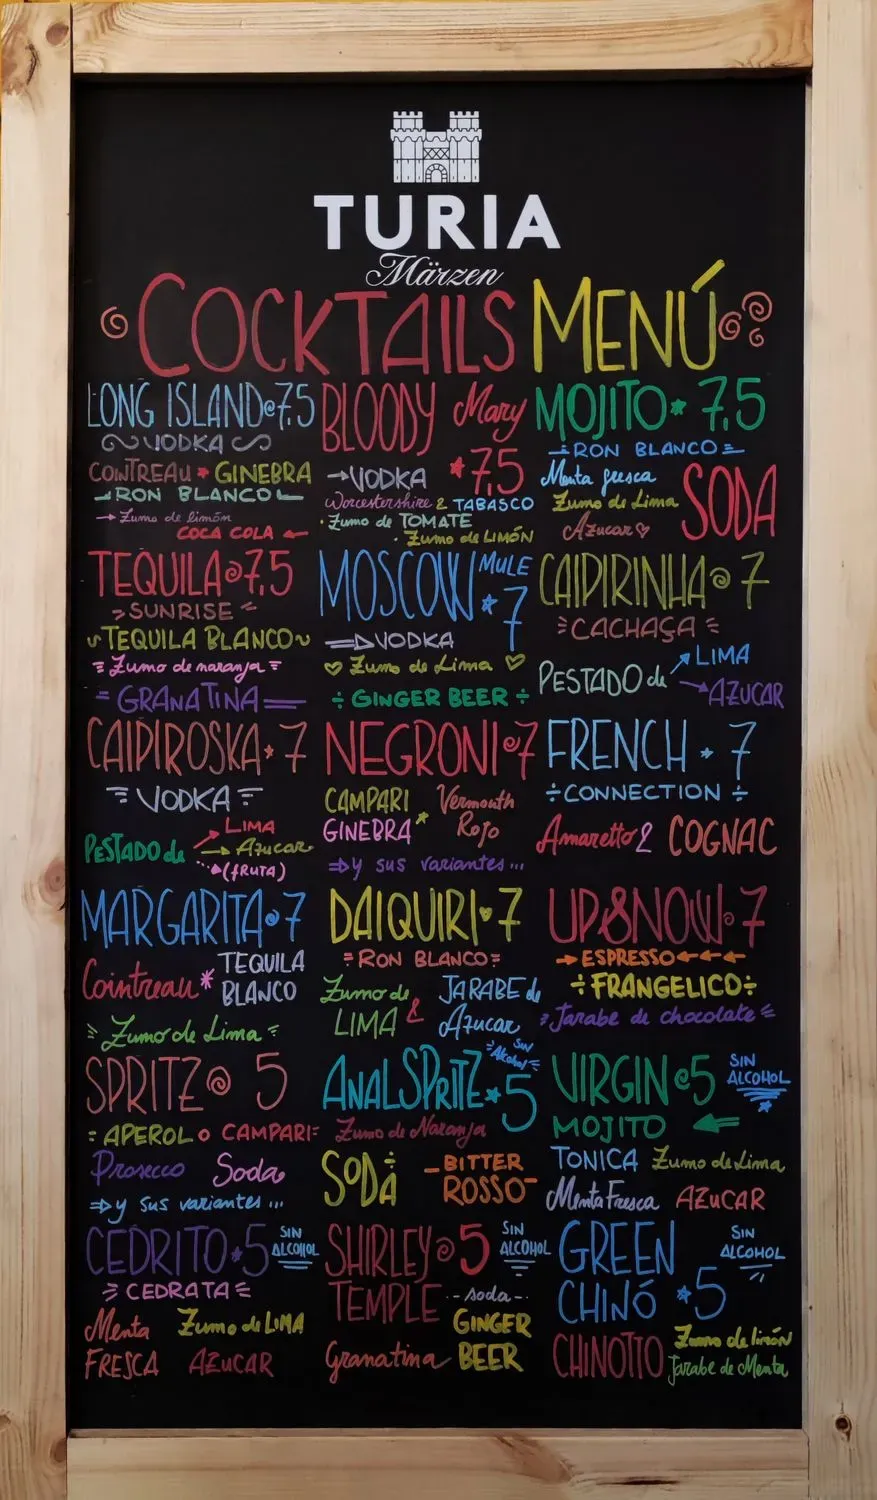 TURIA
Märzen
COCKTAILS MENÚ
LONG ISLAND 7,5
VODKA
COINTREAU GINEBRA
RON BLANCO
Zumo de limón
COCA COLA
BLOODY Mary
VODKA 7,5
Worcestershire & TABASCO
Zumo de TOMATE
Zumo de LIMÓN
MOJITO 7,5
RON BLANCO
Menta fresca
Zumo de Lima
Azucar
SODA
TEQUILA 7,5
SUNRISE
TEQUILA BLANCO
Zumo de naranja
GRANATINA
MOSCOW MULE
7
VODKA
Zumo de Lima
GINGER BEER
CAIPIRINHA 7
CACHAÇA
PESTADO de LIMA
AZUCAR
CAIPIROSKA 7
VODKA
PESTADO de LIMA
Azucar
(fRUTA)
NEGRONI 7
CAMPARI Vermouth
GINEBRA Rojo
y sus variantes...
FRENCH 7
CONNECTION
Amaretto & COGNAC
MARGARITA 7
Cointreau TEQUILA
BLANCO
Zumo de Lima
DAIQUIRI 7
RON BLANCO
Zumo de
LIMA & JARABE de
Azucar
UP&NOW 7
ESPRESSO
FRANGELICO
Jarabe de chocolate
SPRITZ 5
APEROL o CAMPARI
Prosecco Soda
y sus variantes...
ANALSPRITZ 5
Sin Alcohol
Zumo de Naranja
SODA BITTER
ROSSO
VIRGIN 5 SIN
ALCOHOL
MOJITO
TONICA Zumo de Lima
Menta Fresca AZUCAR
CEDRITO 5 SIN
ALCOHOL
CEDRATA
Menta Zumo de LIMA
FRESCA AZUCAR
SHIRLEY 5 SIN
ALCOHOL
TEMPLE soda
GINGER
Granatina BEER
GREEN SIN
ALCOHOL
CHINÓ 5
CHINOTTO Zumo de limón
Jarabe de Menta